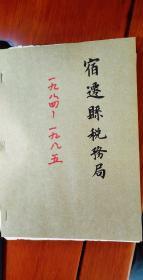 宿遷縣税務局
一九八四-
一九八五